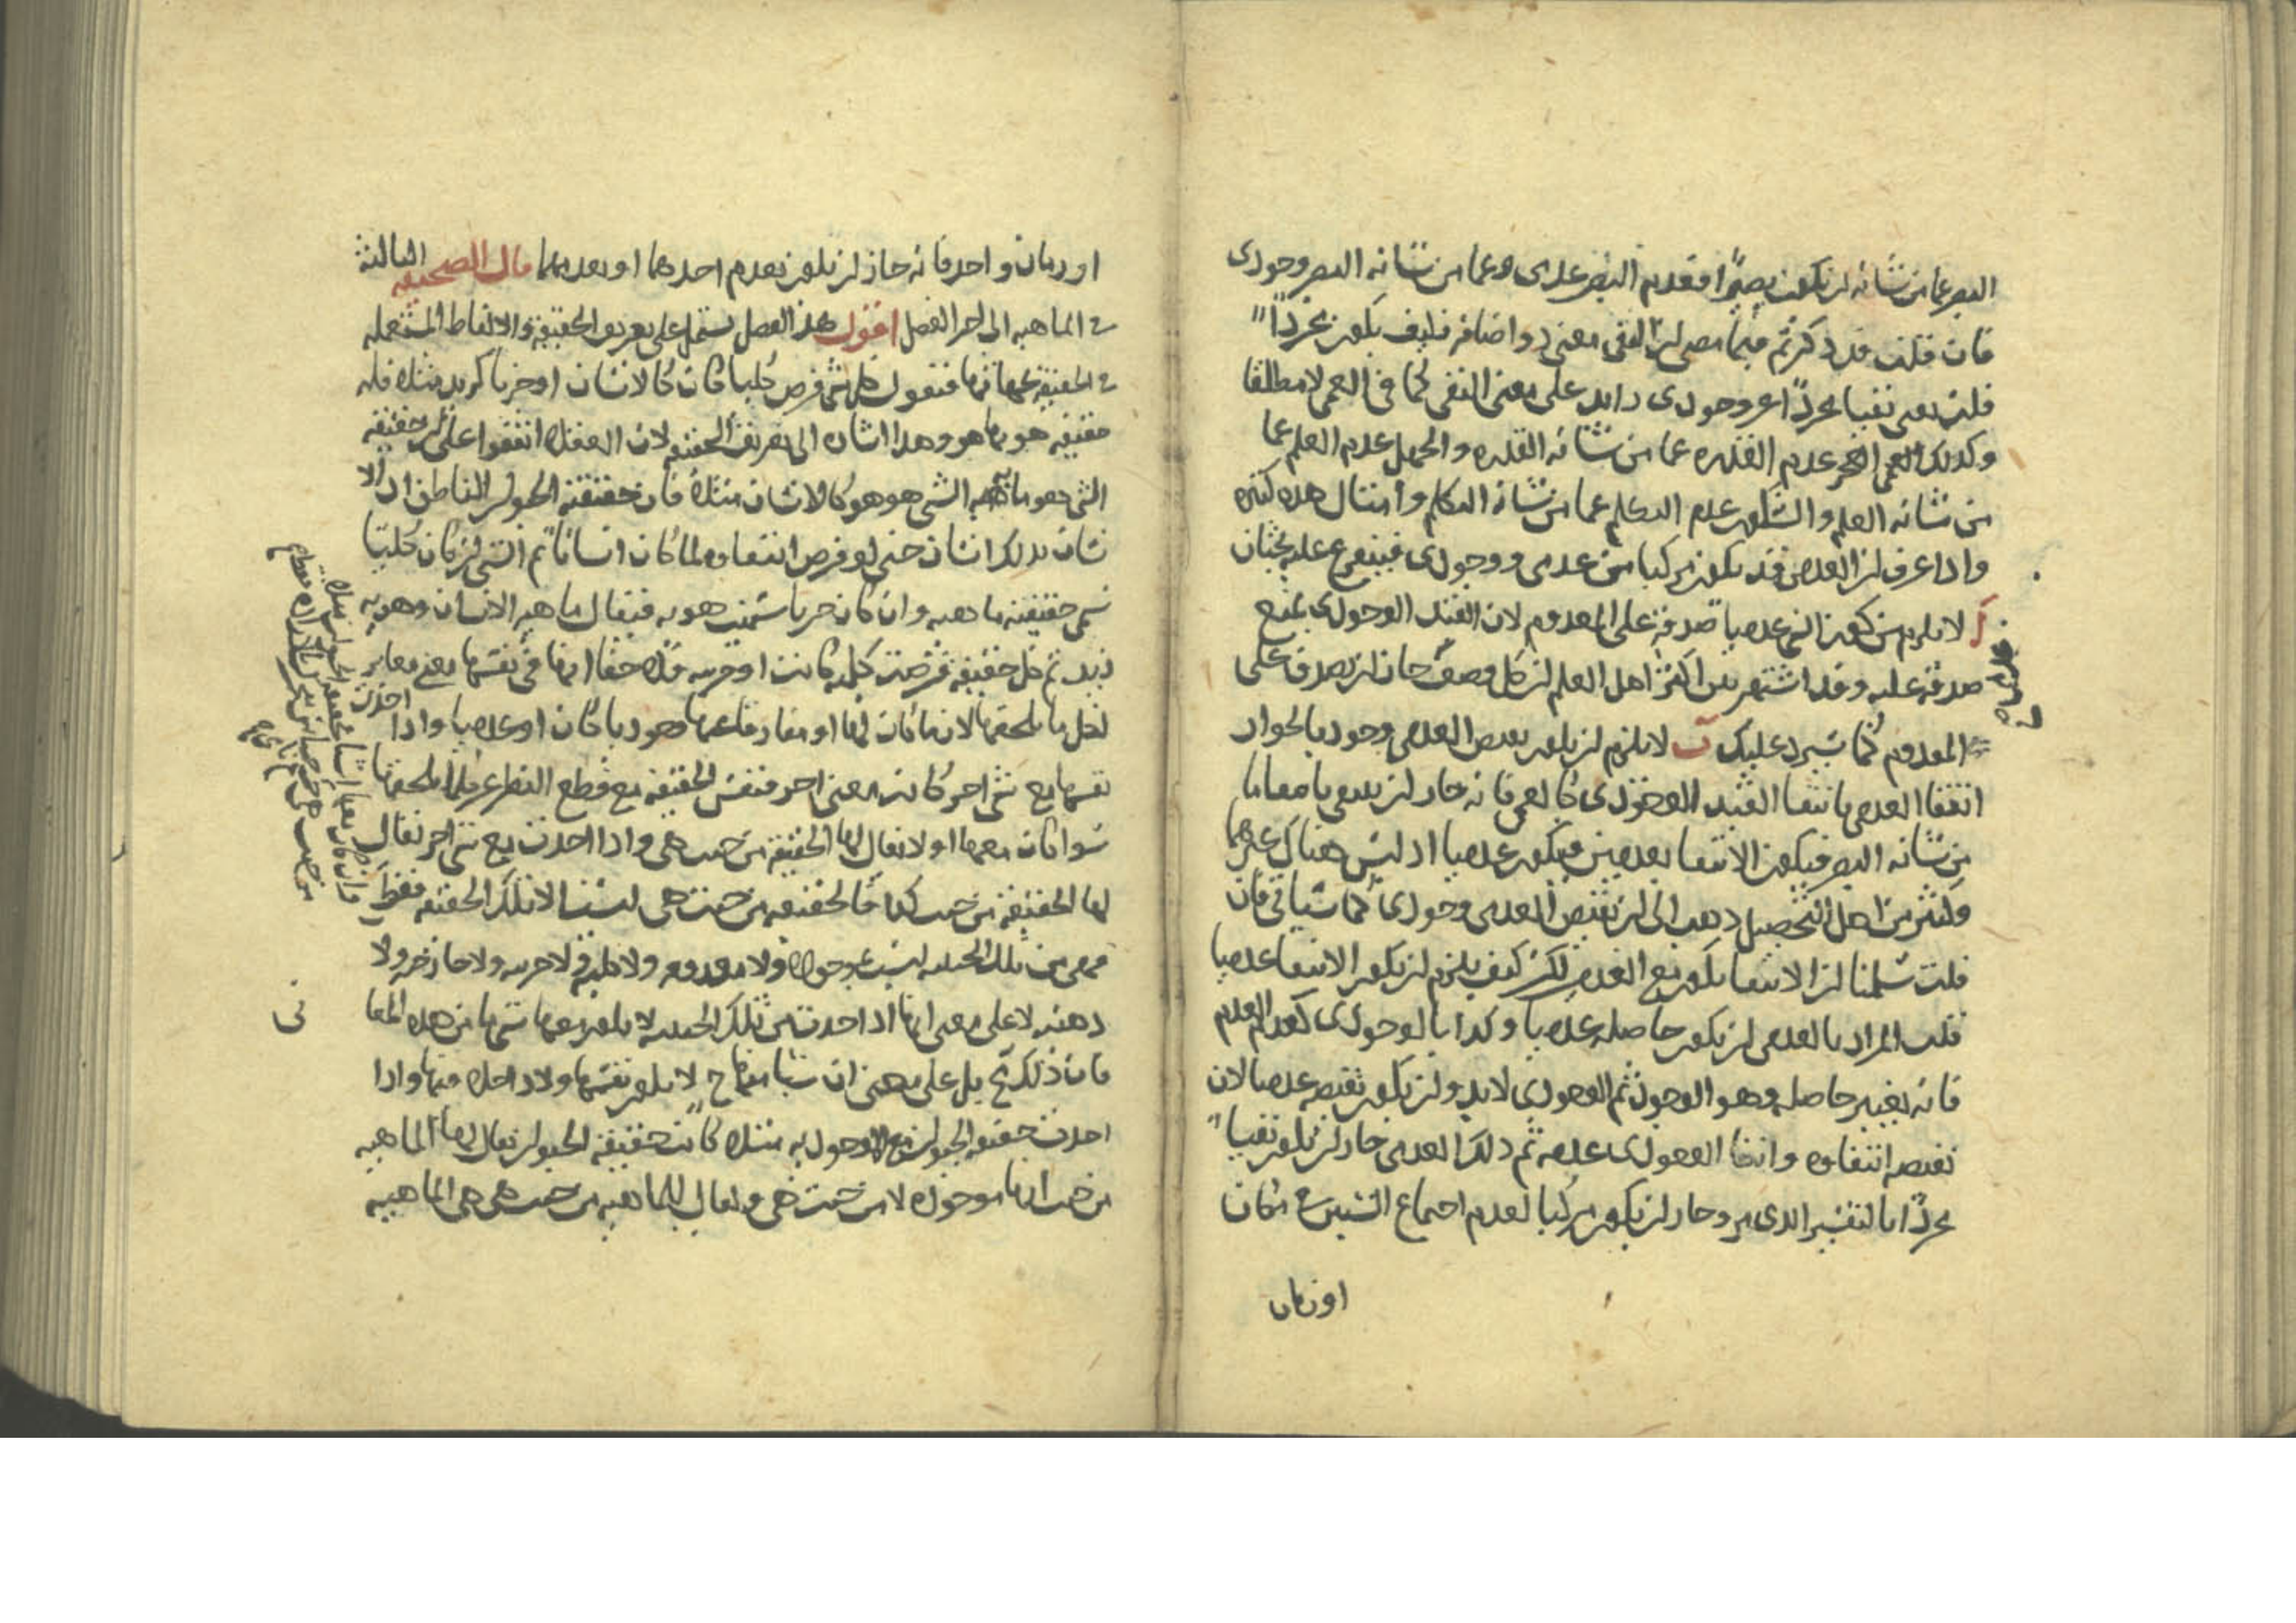 البصر عما من شانه ان يكون بصيرا فعدم البصر عدمى وعما من شانه البصر وجودى
فان قلت قد ذكرتم فيما مضى ان النفى معنى ذو اضافه فكيف يكون مجردا
قلت نعنى نفيا مجردا عن وجودى زايد على معنى النفى كما فى العمى لا مطلقا
وكذلك العجز عدم القدره عما من شانه القدره والجهل عدم العلم عما
من شانه العلم والسكوت عدم التكلم عما من شانه التكلم وامثال هذه كثيره
واذا عرف ان العدمى قد يكون مركبا من عدمى ووجودى فيتفرع عليه بحثان
آ لا يلزم من كون الشى عدميا صدقه على المعدوم لان القيد الوجودى يمنع
صدقه عليه وقد اشتهر بين اكثر اهل العلم ان كل وصف جاز ان يصدق على
المعدوم كما سيرد عليك ب لا يلزم ان يكون نقيض العدمى وجوديا لجواز
انتفا العدمى بانتفا القيد الوجودى كالعمى فانه جاز ان ينتفى بانتفا ما
من شانه البصر فيكون الانتفا بعدمين فيكون عدميا اذ ليس هناك غيرهما
وكثير من اهل التحصيل ذهب الى ان نقيض العدمى وجودى كما سياتى فان
قلت سلمنا ان الانتفا يكون مع العدم لكن كيف يلزم ان يكون الانتفا عدميا
قلت المراد بالعدمى ان يكون حاصله عدميا وكذا بالوجودى كعدم العدم
فانه يعتبر حاصله وهو الوجود ثم الوجودى لا بد وان يكون نقيضه عدميا لان
نقيضه انتفاوه وانتفا الوجودى عدم ثم ذلك العدمى جاز ان يكون نفيا
مجردا بالتفسير الذى مر وجاز ان يكون مركبا كعدم اجتماع الشيئين فى مكان
او زمان
او زمان واحد فانه جاز ان يكون بعدم احدهما او بعدمهما قال الصحيفه الثالثه
فى الماهيه الى اخر الفصل اقول هذا الفصل يشتمل على تعريف الحقيقه والالفاظ المستعمله
فى الحقيقه فنقول كل شى فرض كليا كان كالانسان او جزيا كزيد مثلا فله
حقيقه هو بها هو وهذا اشاره الى تعريف الحقيقه لان العقلا اتفقوا على ان حقيقه
الشى هو ما به الشى هو هو كالانسان مثلا فان حقيقته الحيوان الناطق اذ الا
نسان بذلك انسان حتى لو فرض انتفاوه لما كان انسانا ثم الشى ان كان كليا
سمى حقيقته ماهيه وان كان جزيا سميت هويه فيقال ماهيه الانسان وهويه
زيد ثم كل حقيقه فرضت كليه كانت او جزيه فلها حقا انها فى نفسها معنى مغاير
لكل ما يلحقها لازما كان لها او مفارقا عنها وجوديا كان او عدميا واذا اخذت
نفسها مع شى اخر كانت معنى اخر فنفس الحقيقه مع قطع النظر عن كل ما يلحقها
سوا كان معها او لا يقال لها الحقيقه من حيث هى واذا اخذت مع شى اخر يقال
لها الحقيقه من حيث كذا فالحقيقه من حيث هى ليست الا تلك الحقيقه فقط
فهى من تلك الحيثيه ليست موجوده ولا معدومه ولا كليه ولا جزيه ولا خارجيه ولا
ذهنيه لا على معنى انها اذا اخذت من تلك الحيثيه لا يكون معها شى من هذه المعا
نى
فان ذلك مح بل على معنى ان شيا منها ح لا يكون نفسها ولا داخلا فيها واذا
اخذت حقيقه الحيوان مع الوجود به مثلا كانت حقيقه الحيوان يقال لها الماهيه
من حيث انها موجوده لا من حيث هى ويقال للماهيه من حيث هى هى الماهيه